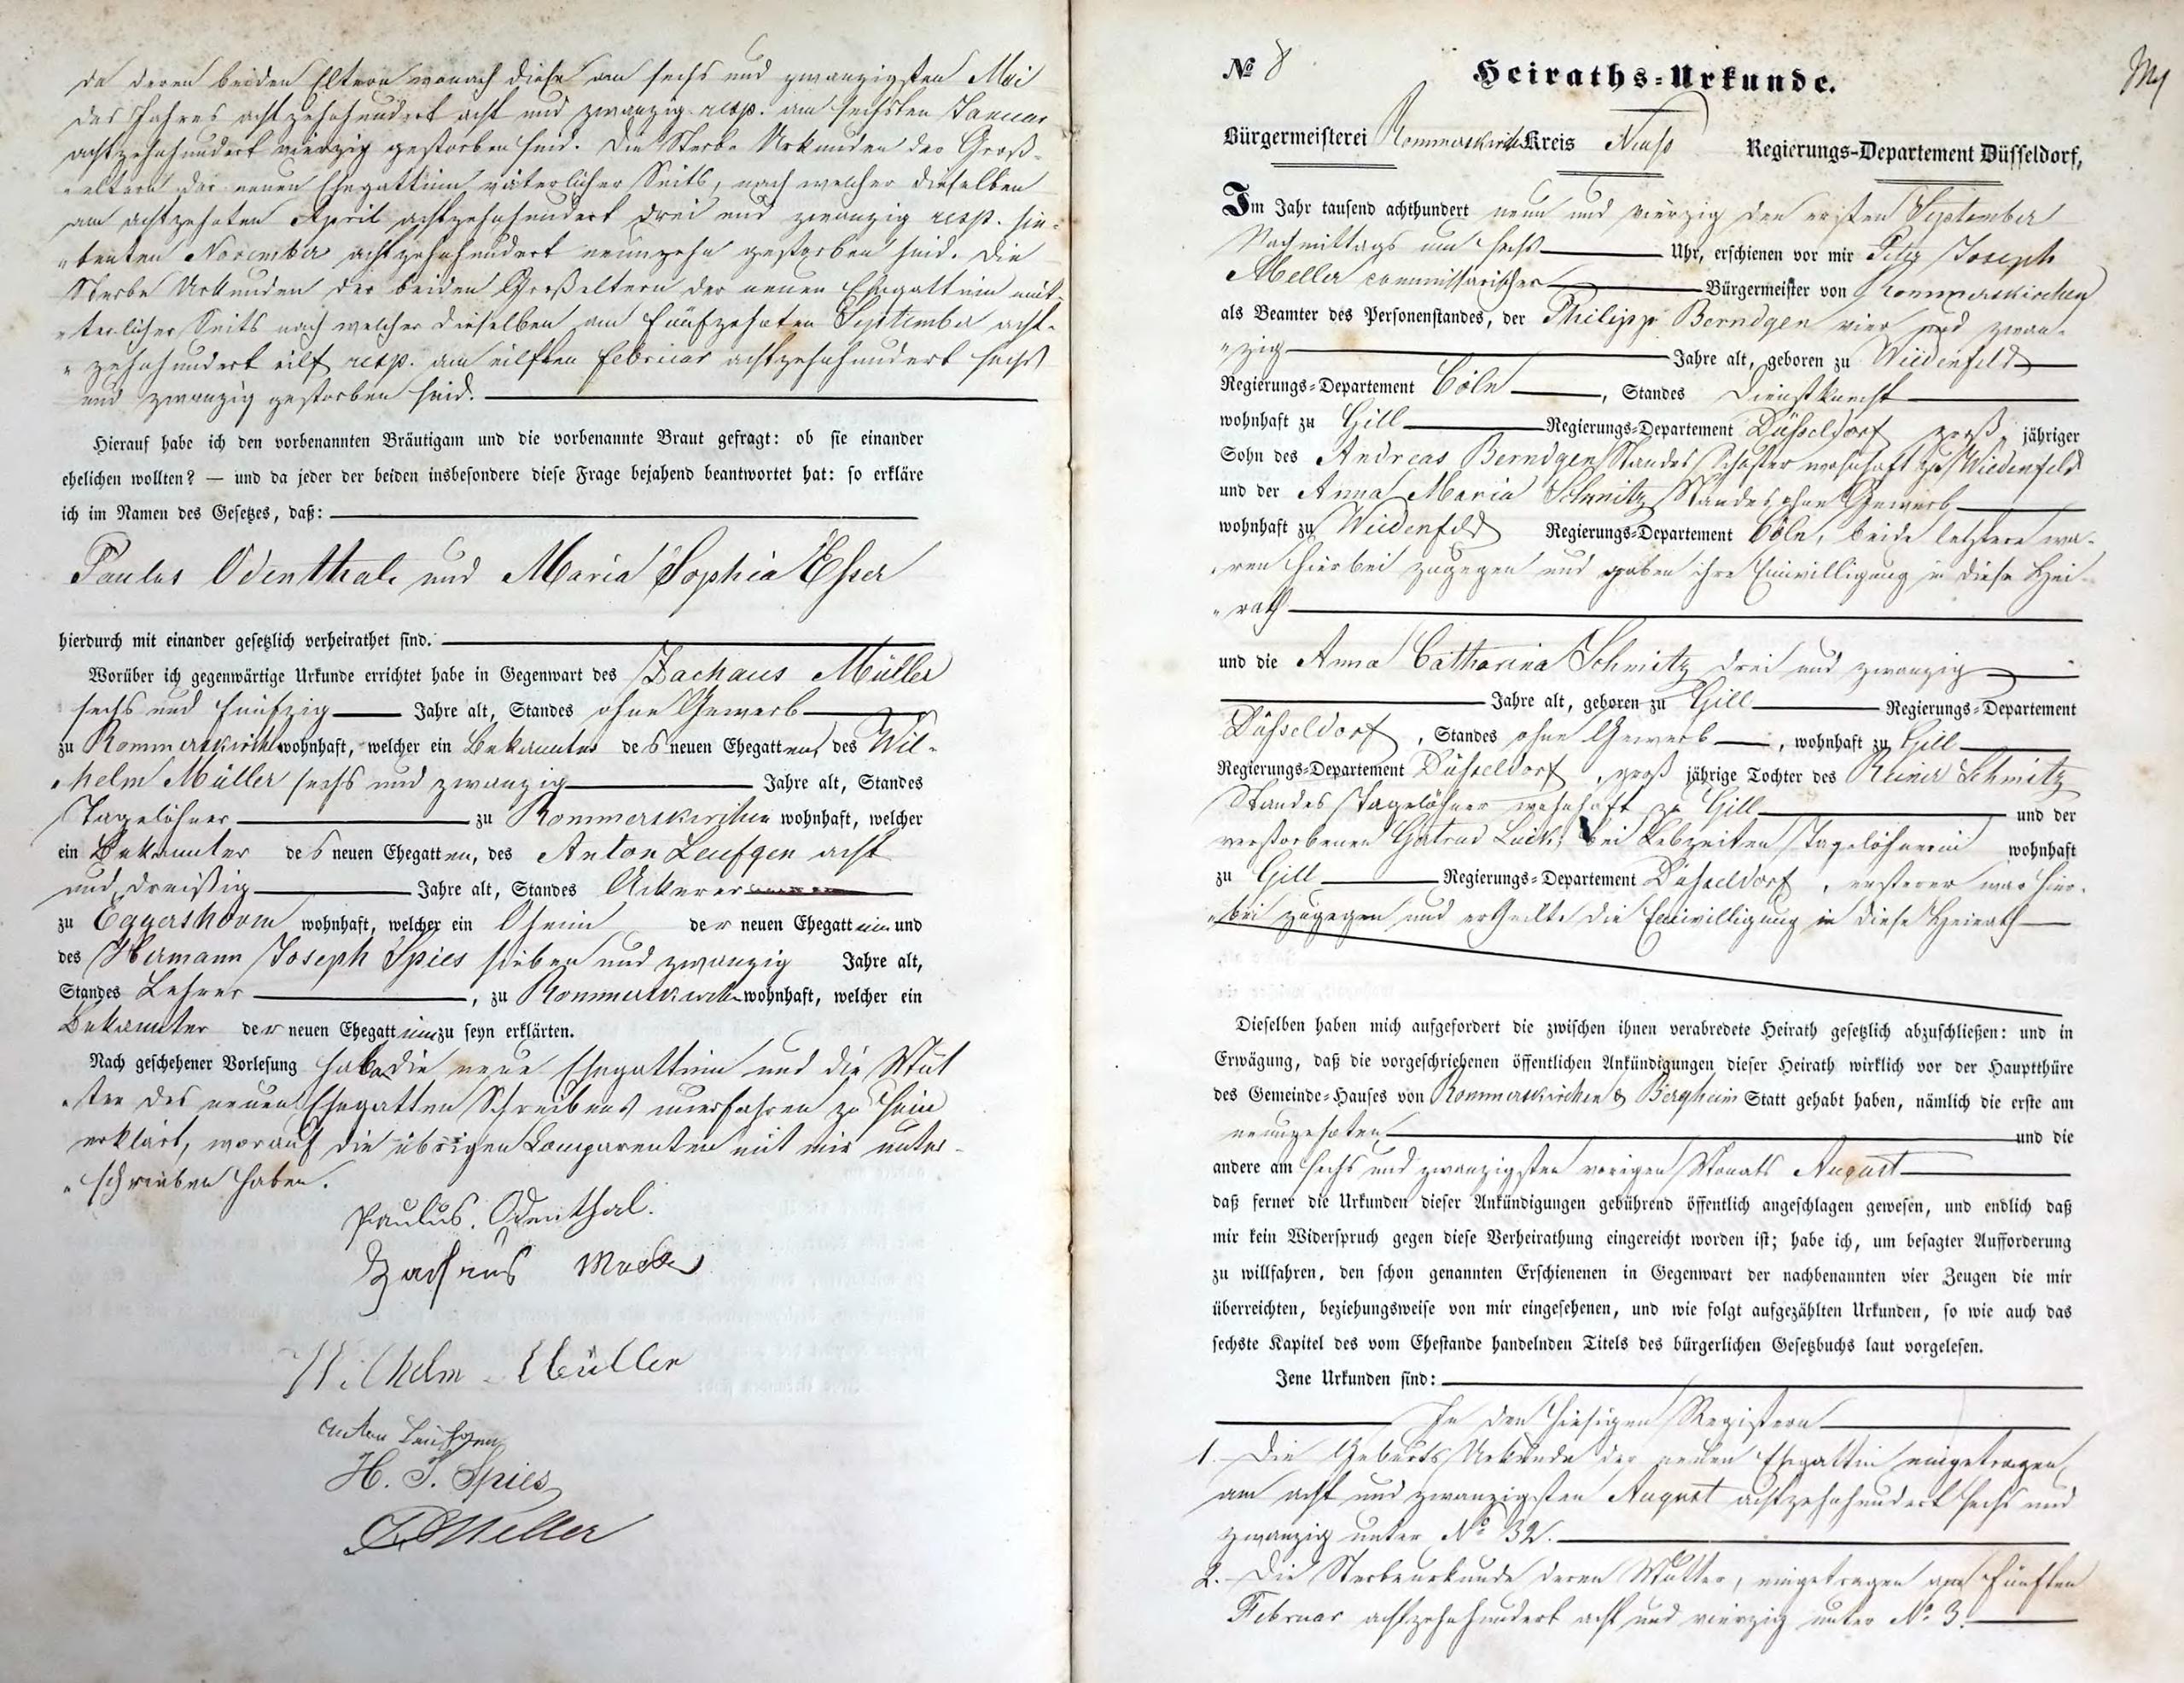 da deren beiden Eltern wonach diese am sechs und zwanzigsten Mai
des Jahres achtzehnhundert acht und zwanzig resp. am sechsten Januar
achtzehnhundert vierzig gestorben sind. Die Sterbe Urkunden der Groß-
"eltern der neuen Ehegattinn väterlicher Seits, nach welcher dieselben
am achtzehnten April achtzehnhundert drei und zwanzig resp. sie-
"benten November achtzehnhundert neunzehn gestorben sind. Die
Sterbe Urkunden der beiden Großeltern der neuen Ehegattinn müt-
"terlicher Seits nach welcher dieselben am fünfzehnten September acht-
"zehnhundert eilf resp. am eilften Februar achtzehnhundert sechs
und zwanzig gestorben sind.
Hierauf habe ich den vorbenannten Bräutigam und die vorbenannte Braut gefragt: ob sie einander
ehelichen wollten? — und da jeder der beiden insbesondere diese Frage bejahend beantwortet hat: so erkläre
ich im Namen des Gesetzes, daß:
Paulus Odenthal und Maria Sophia Esser
hierdurch mit einander gesetzlich verheirathet sind.
Worüber ich gegenwärtige Urkunde errichtet habe in Gegenwart des Zachaus Müller
sechs und fünfzig Jahre alt, Standes ohne Gewerb
zu Rommerskirchen wohnhaft, welcher ein Bekannter des neuen Ehegatten, des Wil-
"helm Müller sechs und zwanzig Jahre alt, Standes
Tagelöhner zu Rommerskirchen wohnhaft, welcher
ein Bekannter des neuen Ehegatten, des Anton Leufgen acht
und dreißig Jahre alt, Standes Ackerer
zu Eggershoven wohnhaft, welcher ein Oheim der neuen Ehegattinn und
des Hermann Joseph Spies sieben und zwanzig Jahre alt,
Standes Lehrer, zu Rommerskirchen wohnhaft, welcher ein
Bekannter der neuen Ehegattinn zu seyn erklärten.
Nach geschehener Vorlesung haben die neue Ehegattinn und die Mut
"ter des neuen Ehegatten Schreibens unerfahren zu sein
erklärt, worauf die übrigen Comparenten mit mir unter-
"schrieben haben.
Paulus. Odenthal.
Zacheus
Wilhelm Müller
Anton Leufgen
H. J. Spies
Meller
№ 8
Heiraths-Urkunde.
Bürgermeisterei Rommerskirchen Kreis Neuss Regierungs-Departement Düsseldorf,
Im Jahr tausend achthundert neun und vierzig den ersten September
Nachmittags um sechs Uhr, erschienen vor mir Peter Joseph
Meller commissarischer Bürgermeister von Rommerskirchen
als Beamter des Personenstandes, der Philipp Berndgen vier und zwan-
"zig Jahre alt, geboren zu Wiedenfeld
Regierungs-Departement Cöln, Standes Dienstknecht
wohnhaft zu Gill Regierungs-Departement Düsseldorf, groß jähriger
Sohn des Andreas Berndgen Standes Schuster wohnhaft zu Wiedenfeld
und der Anna Maria Schmitz Standes ohne Gewerb
wohnhaft zu Wiedenfeld Regierungs-Departement Cöln, beide letztere wa-
"ren hierbei zugegen und gaben ihre Einwilligung in diese Hei-
"rath
und die Anna Catharina Schmitz drei und zwanzig
Jahre alt, geboren zu Gill Regierungs-Departement
Düsseldorf, Standes ohne Gewerb, wohnhaft zu Gill
Regierungs-Departement Düsseldorf, groß jährige Tochter des Reiner Schmitz
Standes Tagelöhner wohnhaft zu Gill und der
verstorbenen Gertrud Lück, bei Lebzeiten Tagelöhnerin wohnhaft
zu Gill Regierungs-Departement Düsseldorf, ersterer war hier-
"bei zugegen und ertheilte die Einwilligung in diese Heirath
Dieselben haben mich aufgefordert die zwischen ihnen verabredete Heirath gesetzlich abzuschließen: und in
Erwägung, daß die vorgeschriebenen öffentlichen Ankündigungen dieser Heirath wirklich vor der Hauptthüre
des Gemeinde-Hauses von Rommerskirchen & Bergheim Statt gehabt haben, nämlich die erste am
neunzehnten und die
andere am sechs und zwanzigsten vorigen Monats August
daß ferner die Urkunden dieser Ankündigungen gebührend öffentlich angeschlagen gewesen, und endlich daß
mir kein Widerspruch gegen diese Verheirathung eingereicht worden ist; habe ich, um besagter Aufforderung
zu willfahren, den schon genannten Erschienenen in Gegenwart der nachbenannten vier Zeugen die mir
überreichten, beziehungsweise von mir eingesehenen, und wie folgt aufgezählten Urkunden, so wie auch das
sechste Kapitel des vom Ehestande handelnden Titels des bürgerlichen Gesetzbuchs laut vorgelesen.
Jene Urkunden sind:
In den hiesigen Registern
1. Die Geburts Urkunde der neuen Ehegattin eingetragen
am acht und zwanzigsten August achtzehnhundert sechs und
zwanzig unter No 32.
2. Die Sterbeurkunde deren Mutter, eingetragen am fünften
Februar achtzehnhundert acht und vierzig unter No 3.